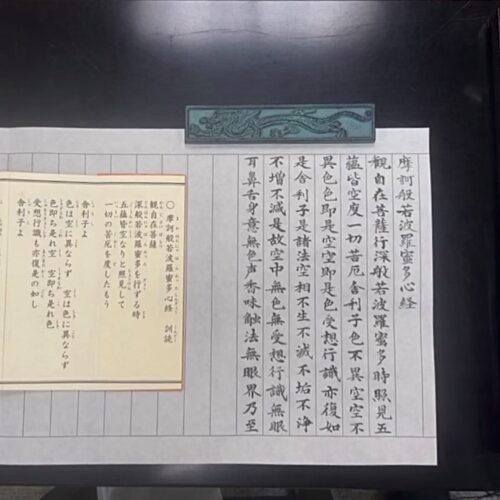 摩訶般若波羅蜜多心経
観自在菩薩行深般若波羅蜜多時照見五
蘊皆空度一切苦厄舎利子色不異空空不
異色色即是空空即是色受想行識亦復如
是舎利子是諸法空相不生不滅不垢不浄
不増不減是故空中無色無受想行識無眼
耳鼻舌身意無色声香味触法無眼界乃至
○摩訶般若波羅蜜多心経 訓読
観自在菩薩
深般若波羅蜜多を行ずる時
五蘊皆空なりと照見して
一切の苦厄を度したもう
舎利子よ
色は空に異ならず 空は色に異ならず
色即ち是れ空 空即ち是れ色
受想行識も亦復是の如し
舎利子よ